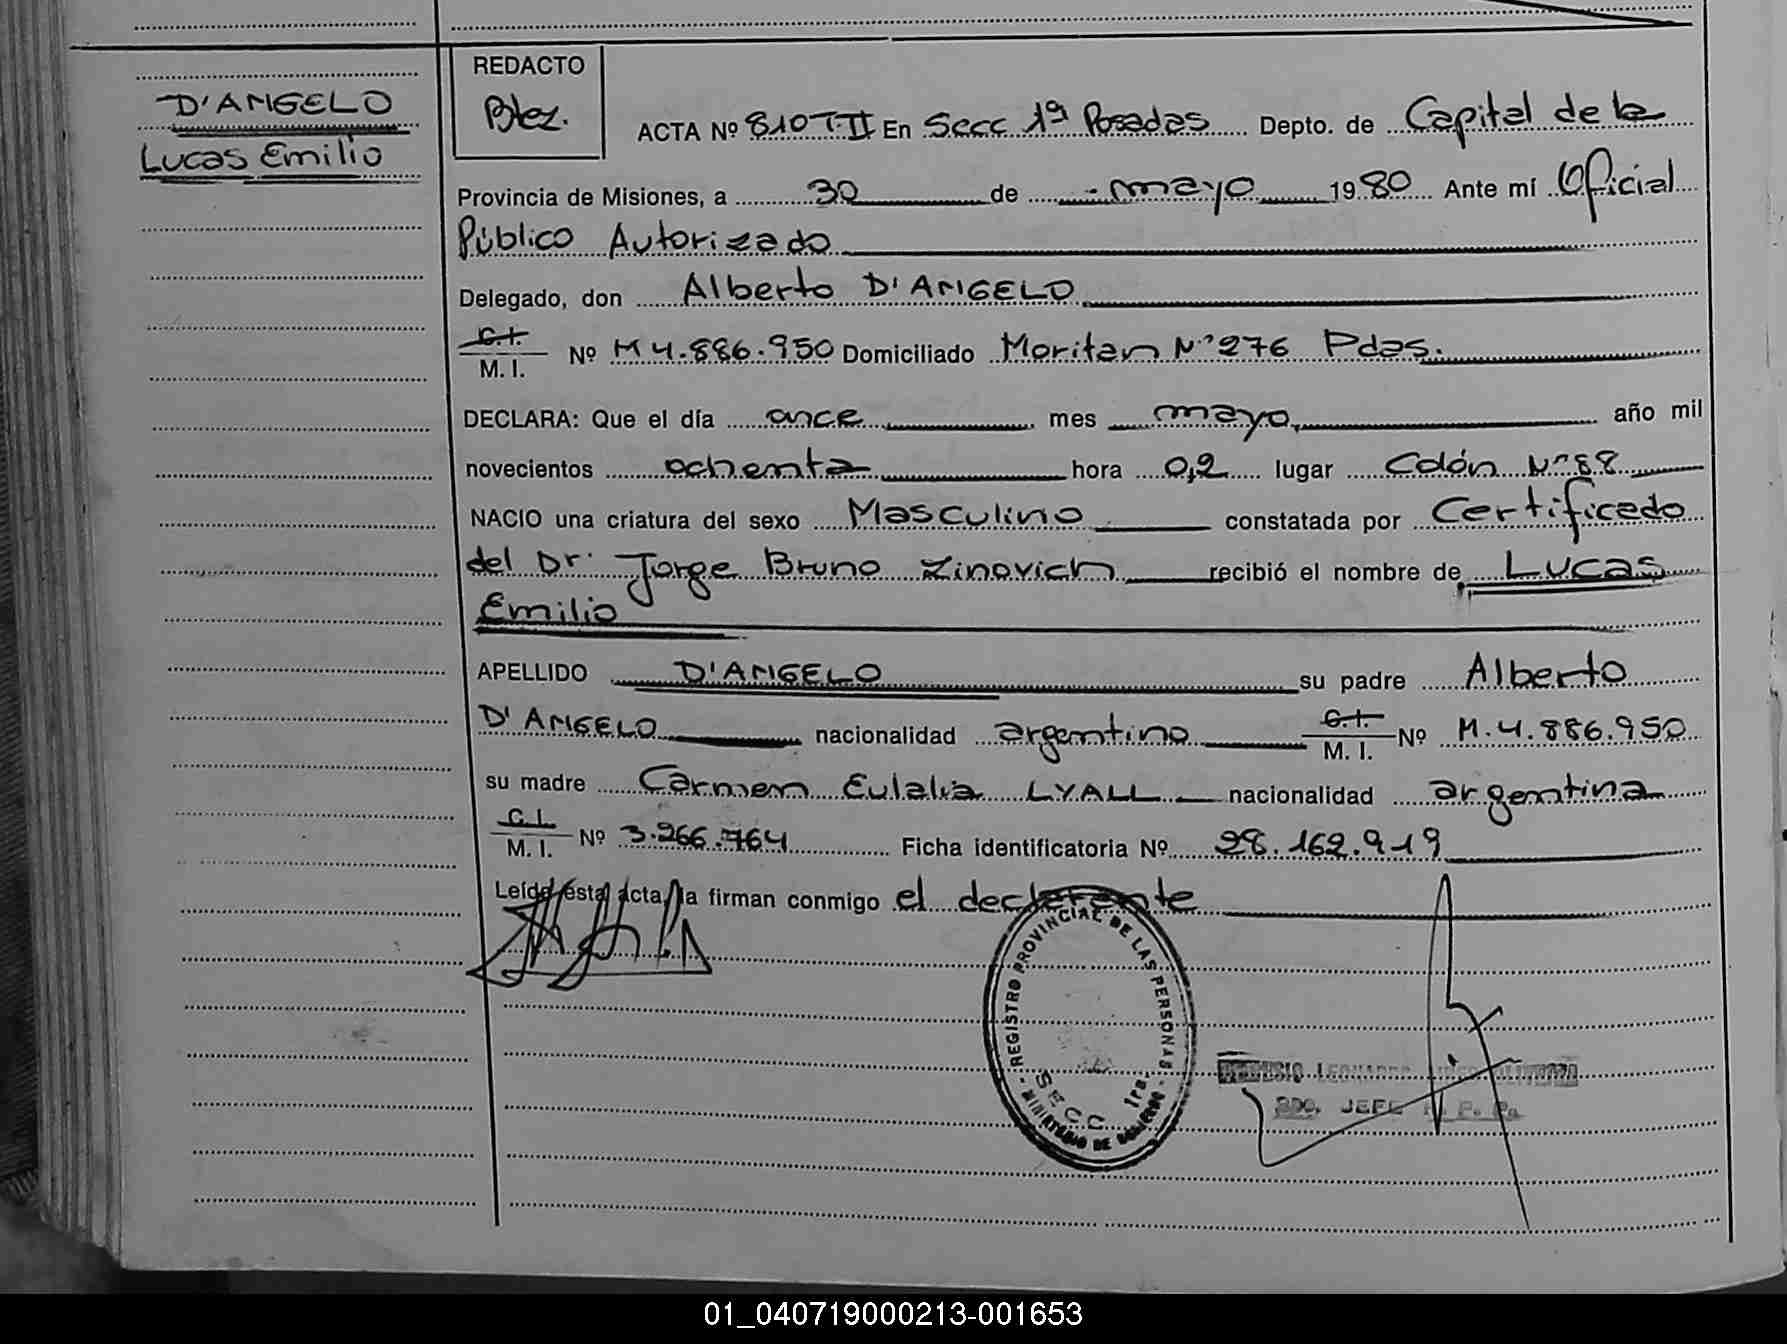 D'ANGELO
Lucas Emilio
REDACTO
Btez.
ACTA Nº 810 T-II En Secc 1ª Posadas Depto. de Capital de la
Provincia de Misiones, a 30 de mayo 1980 Ante mí Oficial
Público Autorizado
Delegado, don Alberto D'ANGELO
C.I.
M. I. Nº M 4.886.950 Domiciliado Moritan Nº 276 Pdas.
DECLARA: Que el día once mes mayo año mil
novecientos ochenta hora 0,2 lugar Colón Nº 88
NACIO una criatura del sexo Masculino constatada por Certificado
del Dr. Jorge Bruno Zinovich recibió el nombre de Lucas
Emilio
APELLIDO D'ANGELO su padre Alberto
D'ANGELO nacionalidad argentino C.I. M. I. Nº M.4.886.950
su madre Carmen Eulalia LYALL nacionalidad argentina
C.I.
M. I. Nº 3.266.764 Ficha identificatoria Nº 28.162.919
Leída esta acta, la firman conmigo el declarante
REGISTRO PROVINCIAL DE LAS PERSONAS
SECC 1ra.
MINISTERIO DE GOBIERNO
JEFE R. P. P.
01_040719000213-001653